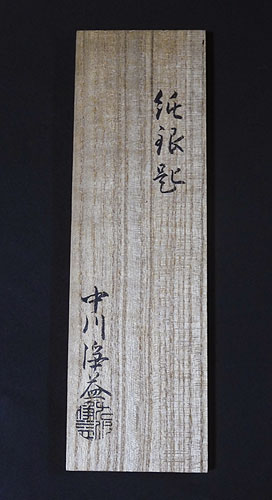 純銀匙
中川浄益